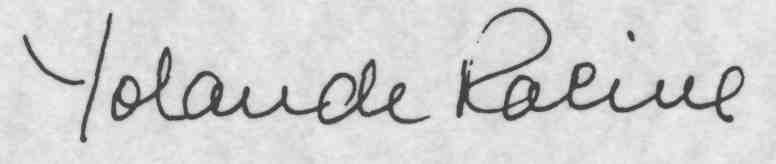 Yolande Racine